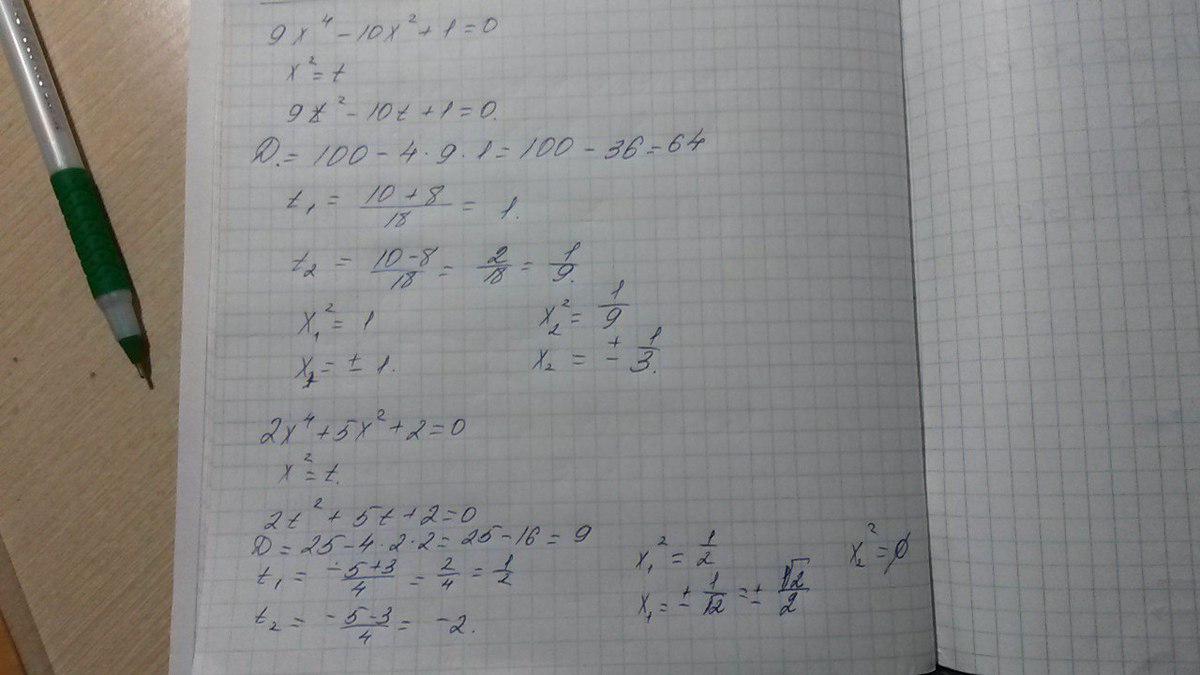 9x⁴ - 10x² + 1 = 0
x² = t
9t² - 10t + 1 = 0.
D. = 100 - 4 · 9 · 1 = 100 - 36 = 64
t₁ = (10 + 8)/18 = 1.
t₂ = (10 - 8)/18 = 2/18 = 1/9.
x₁² = 1 x₂² = 1/9
x₁ = ± 1. x₂ = ± 1/3.
2x⁴ + 5x² + 2 = 0
x² = t.
2t² + 5t + 2 = 0
D = 25 - 4 · 2 · 2 = 25 - 16 = 9
t₁ = (-5 + 3)/4 = 2/4 = 1/2
t₂ = (-5 - 3)/4 = -2.
x₁² = 1/2 x₂² = ∅
x₁ = ± 1/√2 = ± √2/2